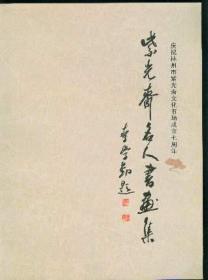 庆祝林州市紫光斋文化市场成立七周年
紫光斋名人书画集
李学勤题